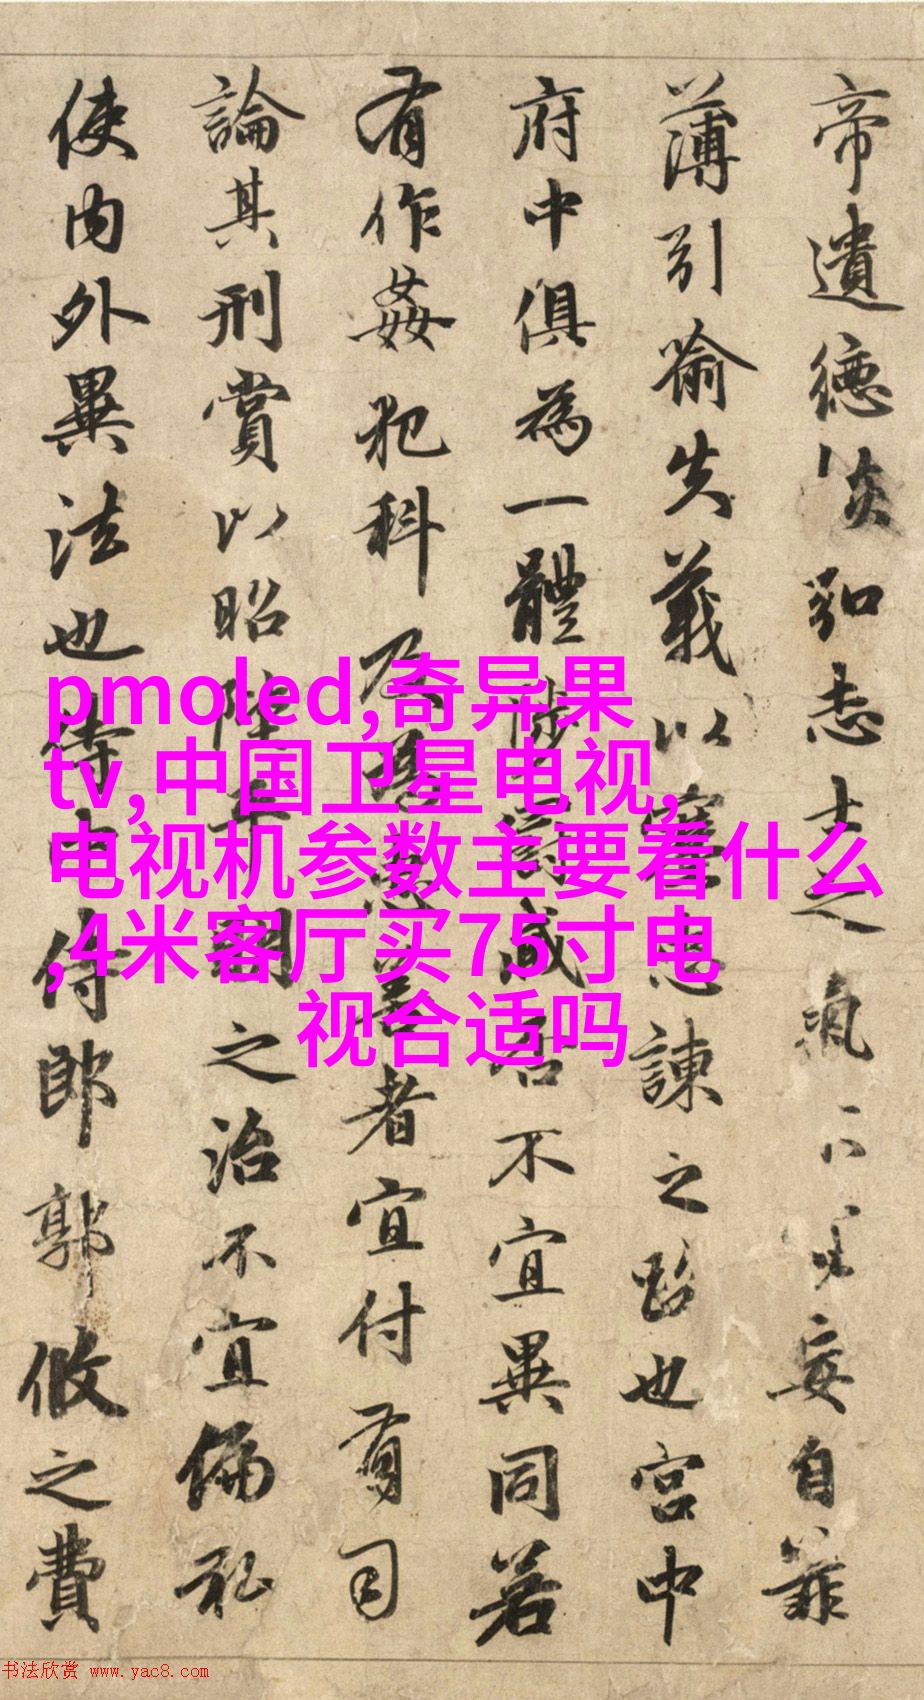 帝遺德恢弘志士之氣不宜妄自菲
薄引喻失義以塞忠諫之路也宮中
府中俱為一體陟罰臧否不宜異同若
有作姦犯科及為忠善者宜付有司
論其刑賞以昭陛平明之治不宜偏私
使內外異法也侍中侍郎郭攸之費
pmoled,奇异果
tv,中国卫星电视,
电视机参数主要看什么
,4米客厅买75寸电
视合适吗
书法欣赏 www.yac8.com